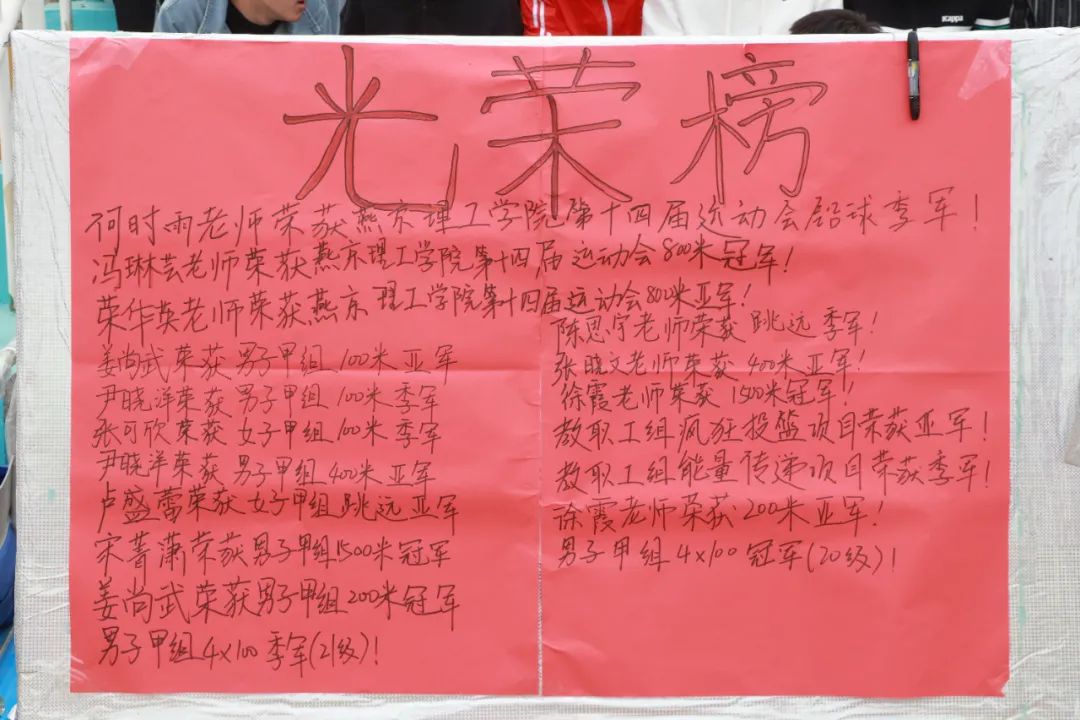 光荣榜
何时雨老师荣获燕京理工学院第十四届运动会铅球季军!
冯琳芸老师荣获燕京理工学院第十四届运动会800米冠军!
荣华英老师荣获燕京理工学院第十四届运动会800米亚军!
姜尚武荣获男子甲组100米亚军
尹晓洋荣获男子甲组100米季军
张可欣荣获女子甲组100米季军
尹晓洋荣获男子甲组400米亚军
卢盛蕾荣获女子甲组跳远亚军
宋菁潇荣获男子甲组1500米冠军
姜尚武荣获男子甲组200米冠军
男子甲组4×100季军(21级)!
陈思宇老师荣获跳远季军!
张晓文老师荣获400米亚军!
徐霞老师荣获1500米冠军!
教职工组疯狂投篮项目荣获亚军!
教职工组能量传递项目荣获季军!
徐霞老师荣获200米亚军!
男子甲组4×100冠军(20级)!
Kappa